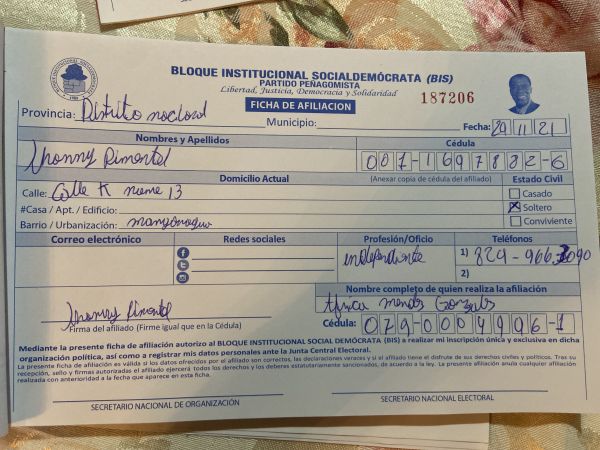 BLOQUE INSTITUCIONAL SOCIALDEMÓCRATA (BIS)
PARTIDO PEÑAGOMISTA
Libertad, Justicia, Democracia y Solidaridad
FICHA DE AFILIACION
187206
Provincia: Distrito nacional Municipio: Fecha: 29 11 21
Nombres y Apellidos Cédula
Jhonny Pimentel 001-1697882-6
Domicilio Actual (Anexar copia de cédula del afiliado) Estado Civil
Calle: Calle K nume 13 Casado
#Casa / Apt. / Edificio: Soltero
Barrio / Urbanización: Conviviente
Correo electrónico Redes sociales Profesión/Oficio Teléfonos
independiente 1) 829-966
2)
Nombre completo de quien realiza la afiliación
Jhonny Pimentel Mendes Gonzales
Firma del afiliado (Firme igual que en la Cédula) Cédula: 079-0004996-1
Mediante la presente ficha de afiliación autorizo al BLOQUE INSTITUCIONAL SOCIAL DEMÓCRATA (BIS) a realizar mi inscripción única y exclusiva en dicha
organización política, así como a registrar mis datos personales ante la Junta Central Electoral.
La presente ficha de afiliación es válida si los datos ofrecidos por el afiliado son correctos, las declaraciones veraces y si al afiliado tiene el disfrute de sus derechos civiles y políticos. Tras su
recepción, sello y firmas autorizadas el afiliado ejercerá todos los derechos y los deberes estatutariamente sancionados, de acuerdo a la ley. La presente afiliación anula cualquier afiliación
realizada con anterioridad a la fecha que aparece en esta ficha.
SECRETARIO NACIONAL DE ORGANIZACIÓN SECRETARIO NACIONAL ELECTORAL